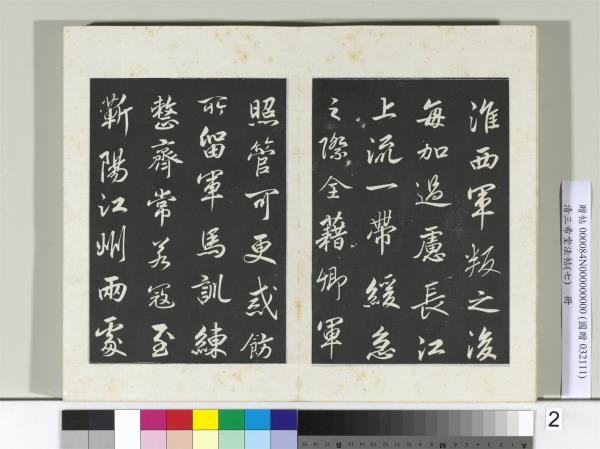 淮西軍叛之後
每加過慮長江
上流一帶緩急
之際全藉卿軍
照管可更戒飭
所留軍馬訓練
整齊常若寇至
蘄陽江州兩處
贈帖 000084N000000000 (國贈 032111)
清三希堂法帖(七) 冊
2